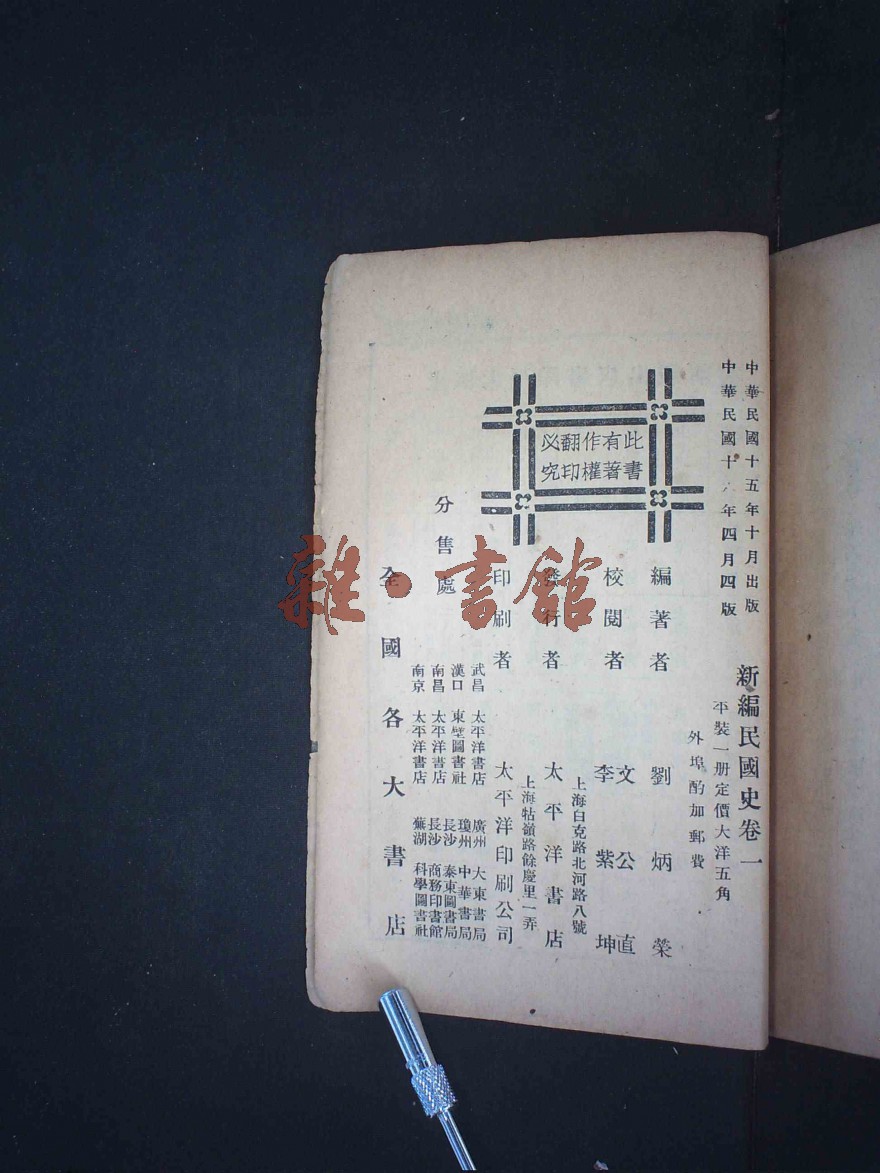 中華民國十五年十月出版
中華民國十年四月四版
新編民國史卷一
平裝一册定價大洋五角
外埠酌加郵費
此書有著作權翻印必究
編著者 劉炳榮
校閱者 文公直 李紫坤
發行者 太平洋書店
上海白克路北河路八號
印刷者 太平洋印刷公司
上海牯嶺路餘慶里一弄
分售處
武昌 太平洋書店 廣州 大東書局
漢口 東壁圖書社 瓊州 中華書局
南昌 太平洋書店 長沙 泰東圖書局
南京 太平洋書店 長沙 商務印書館
蕪湖 科學圖書社
全國各大書店
雜·書館